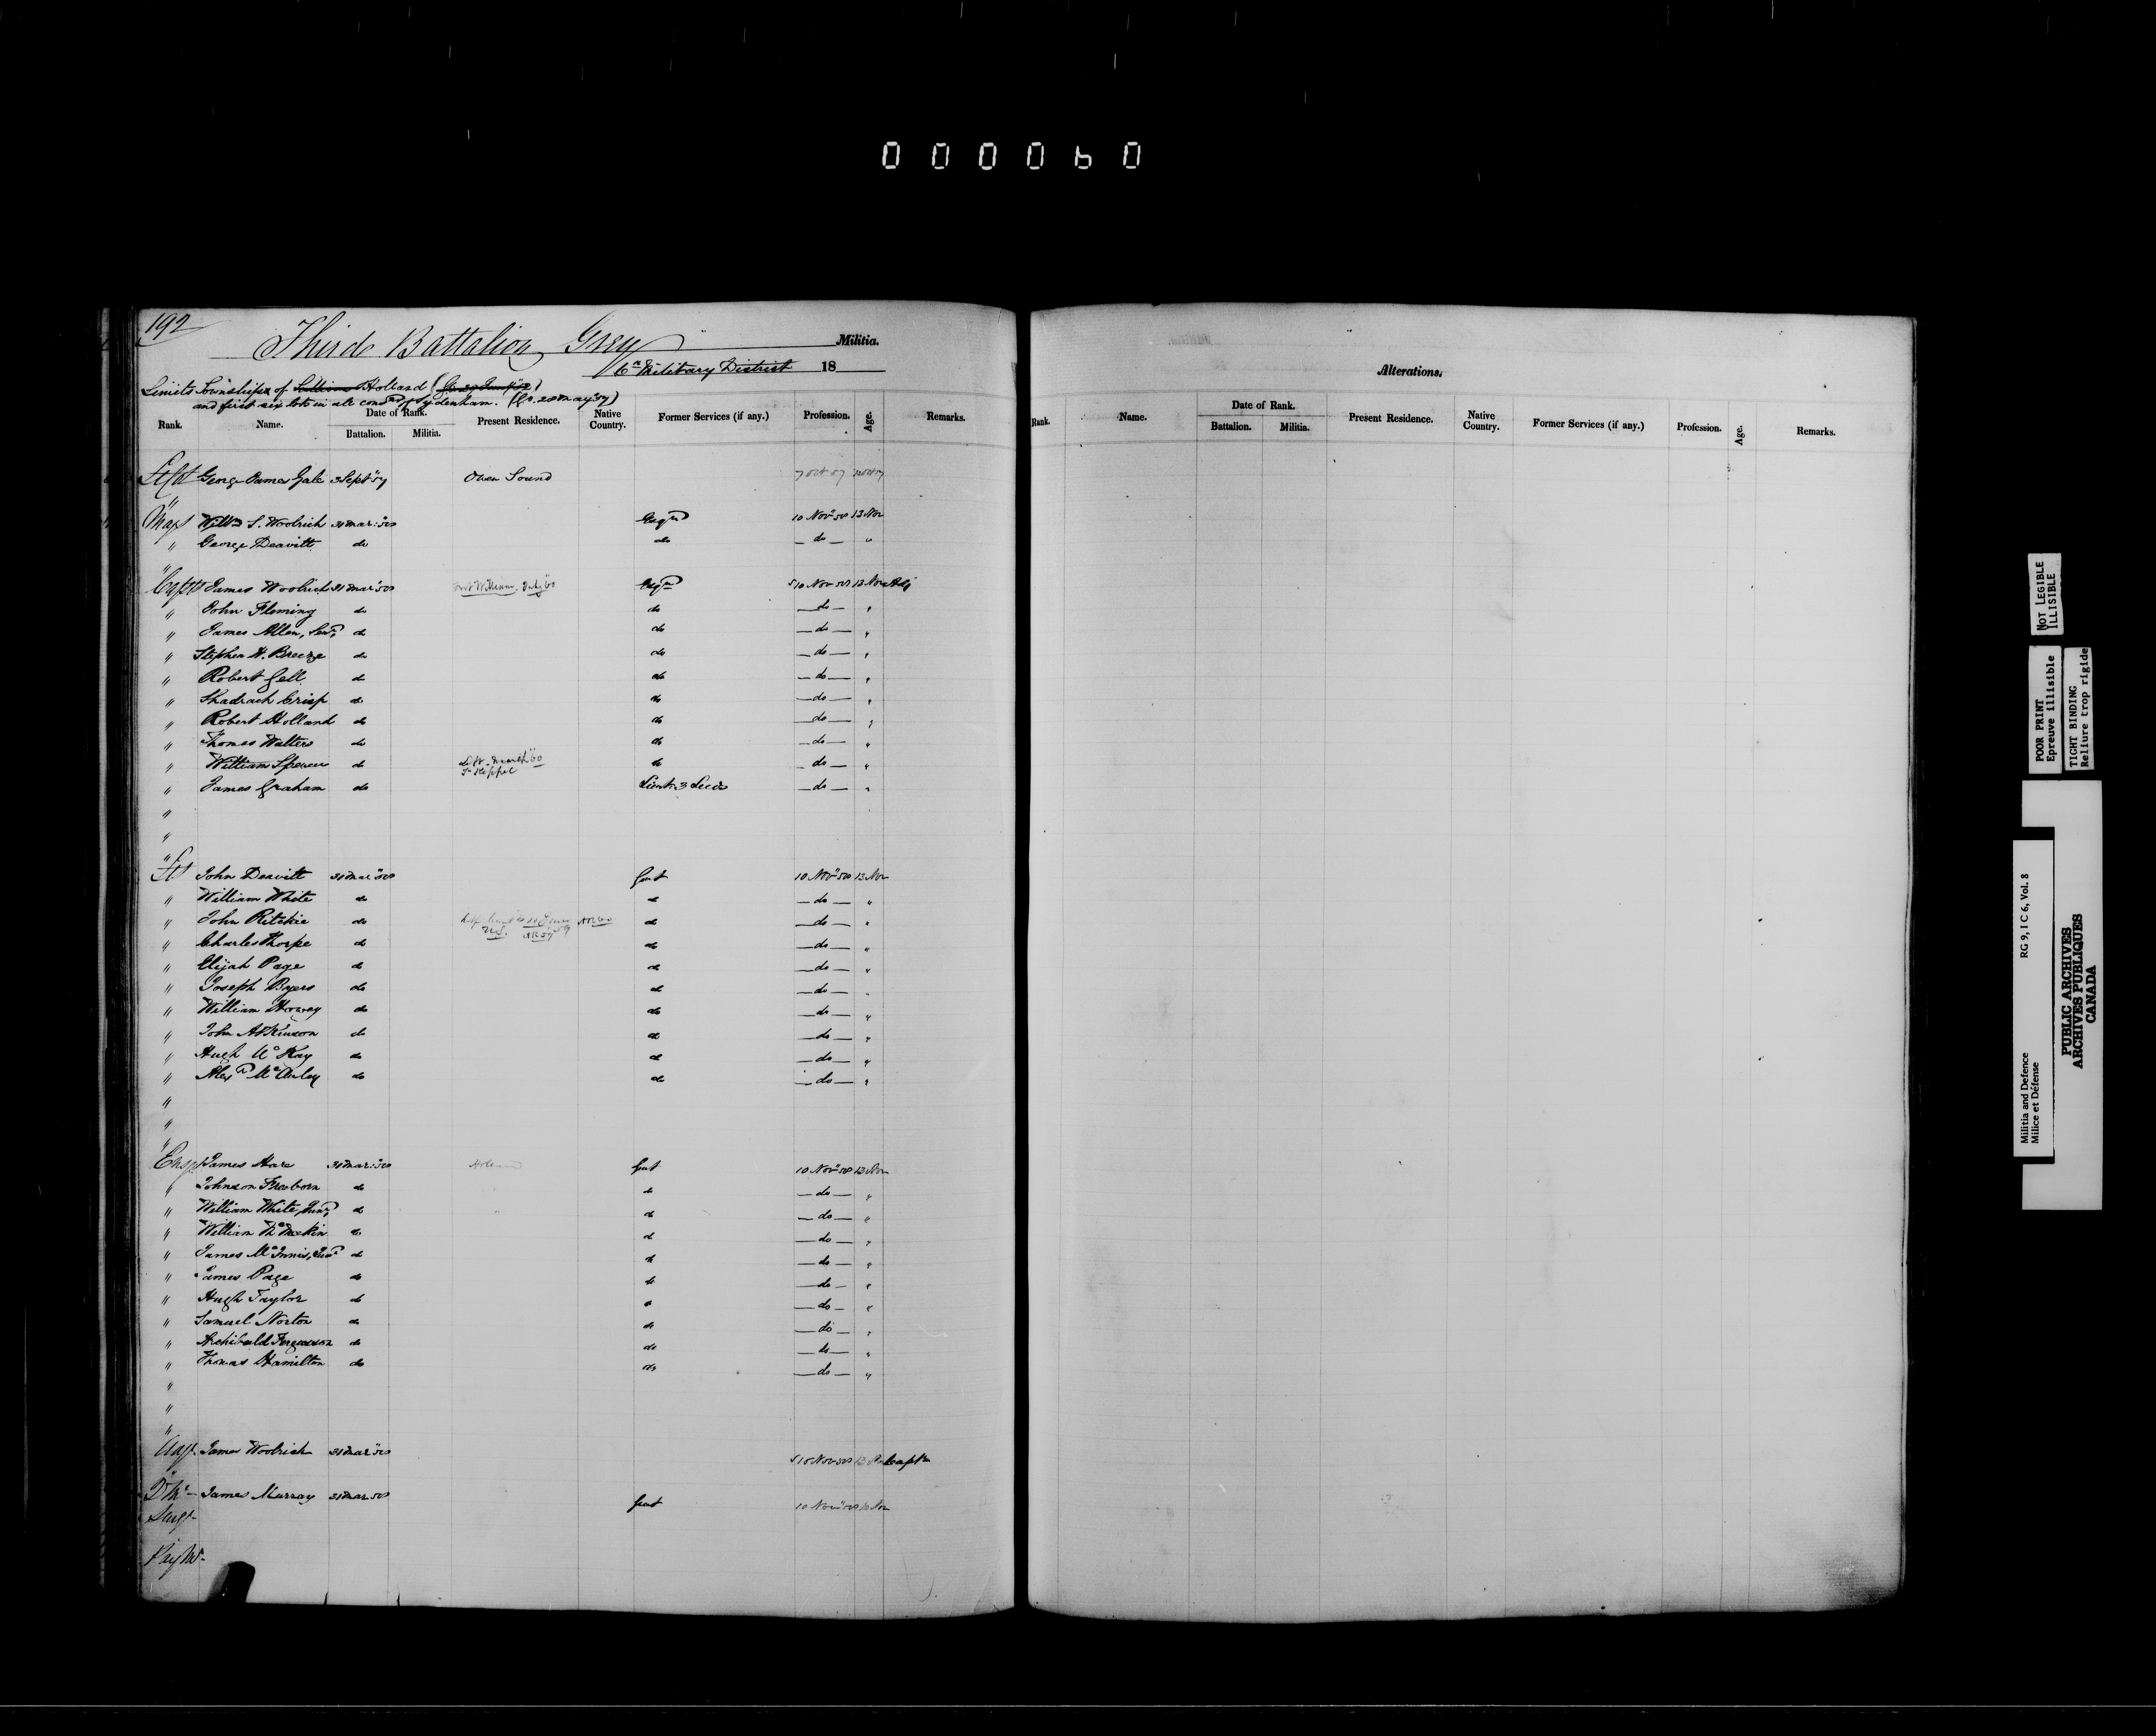 000060
192
Third Battalion Grey Militia.
6th Military District 18
Limits Townships of Sullivan Holland
and first six lots in all conns of Sydenham. (G.O. 28 May '57)
Rank. Name. Date of Rank. Battalion. Militia. Present Residence. Native Country. Former Services (if any.) Profession. Age. Remarks.
Lt Col George James Gale 3 Sept '57 Owen Sound 7 Oct 57
Majs Willm S. Woolrich 31 Mar: '58 Esqr 10 Novr 58 13 Nov
" George Deavitt do do — do — "
"
Capts James Woolrich 31 Mar '58 Fort William Esqr 510 Nov 58 13 Nov Adj
" John Fleming do do — do — "
" James Allen, Senr do do — do — "
" Stephen H. Breeze do do — do — "
" Robert Gell do do — do — "
" Shadrach Crisp do do — do — "
" Robert Holland do do — do — "
" Thomas Walters do do — do — "
" William Spencer do Left March 60 do — do — "
To Keppel
" James Graham do Lieut 3 Leeds — do — "
"
"
"
Lts John Deavitt 31 Mar '58 Gent 10 Novr 58 13 Nov
" William White do do — do — "
" John Ritchie do U.S. do — do — "
" Charles Thorpe do do — do — "
" Elijah Page do do — do — "
" Joseph Byers do do — do — "
" William Howey do do — do — "
" John Atkinson do do — do — "
" Hugh McKay do do — do — "
" Alexr McAuley do do — do — "
"
"
"
Ensgs James Hare 31 Mar: '58 Gent 10 Novr 58 13 Nov
" Johnson Freeborn do do — do — "
" William White, Junr do do — do — "
" William McMeekin do do — do — "
" James McInnis, Junr do do — do — "
" James Page do do — do — "
" Hugh Taylor do do — do — "
" Samuel Norton do do — do — "
" Archibald Ferguson do do — do — "
" Thomas Hamilton do do — do — "
"
"
"
Adjt James Woolrich 31 Mar '58 510 Nov 58 13 Capt
Qr Mr James Murray 31 Mar 58 Gent 10 Novr 58
Surg-
Pay Mr-
Alterations.
Rank. Name. Date of Rank. Battalion. Militia. Present Residence. Native Country. Former Services (if any.) Profession. Age. Remarks.
NOT LEGIBLE
ILLISIBLE
POOR PRINT
Epreuve illisible
TIGHT BINDING
Reliure trop rigide
Militia and Defence
Milice et Défense
RG 9, I C 6, Vol. 8
PUBLIC ARCHIVES
ARCHIVES PUBLIQUES
CANADA